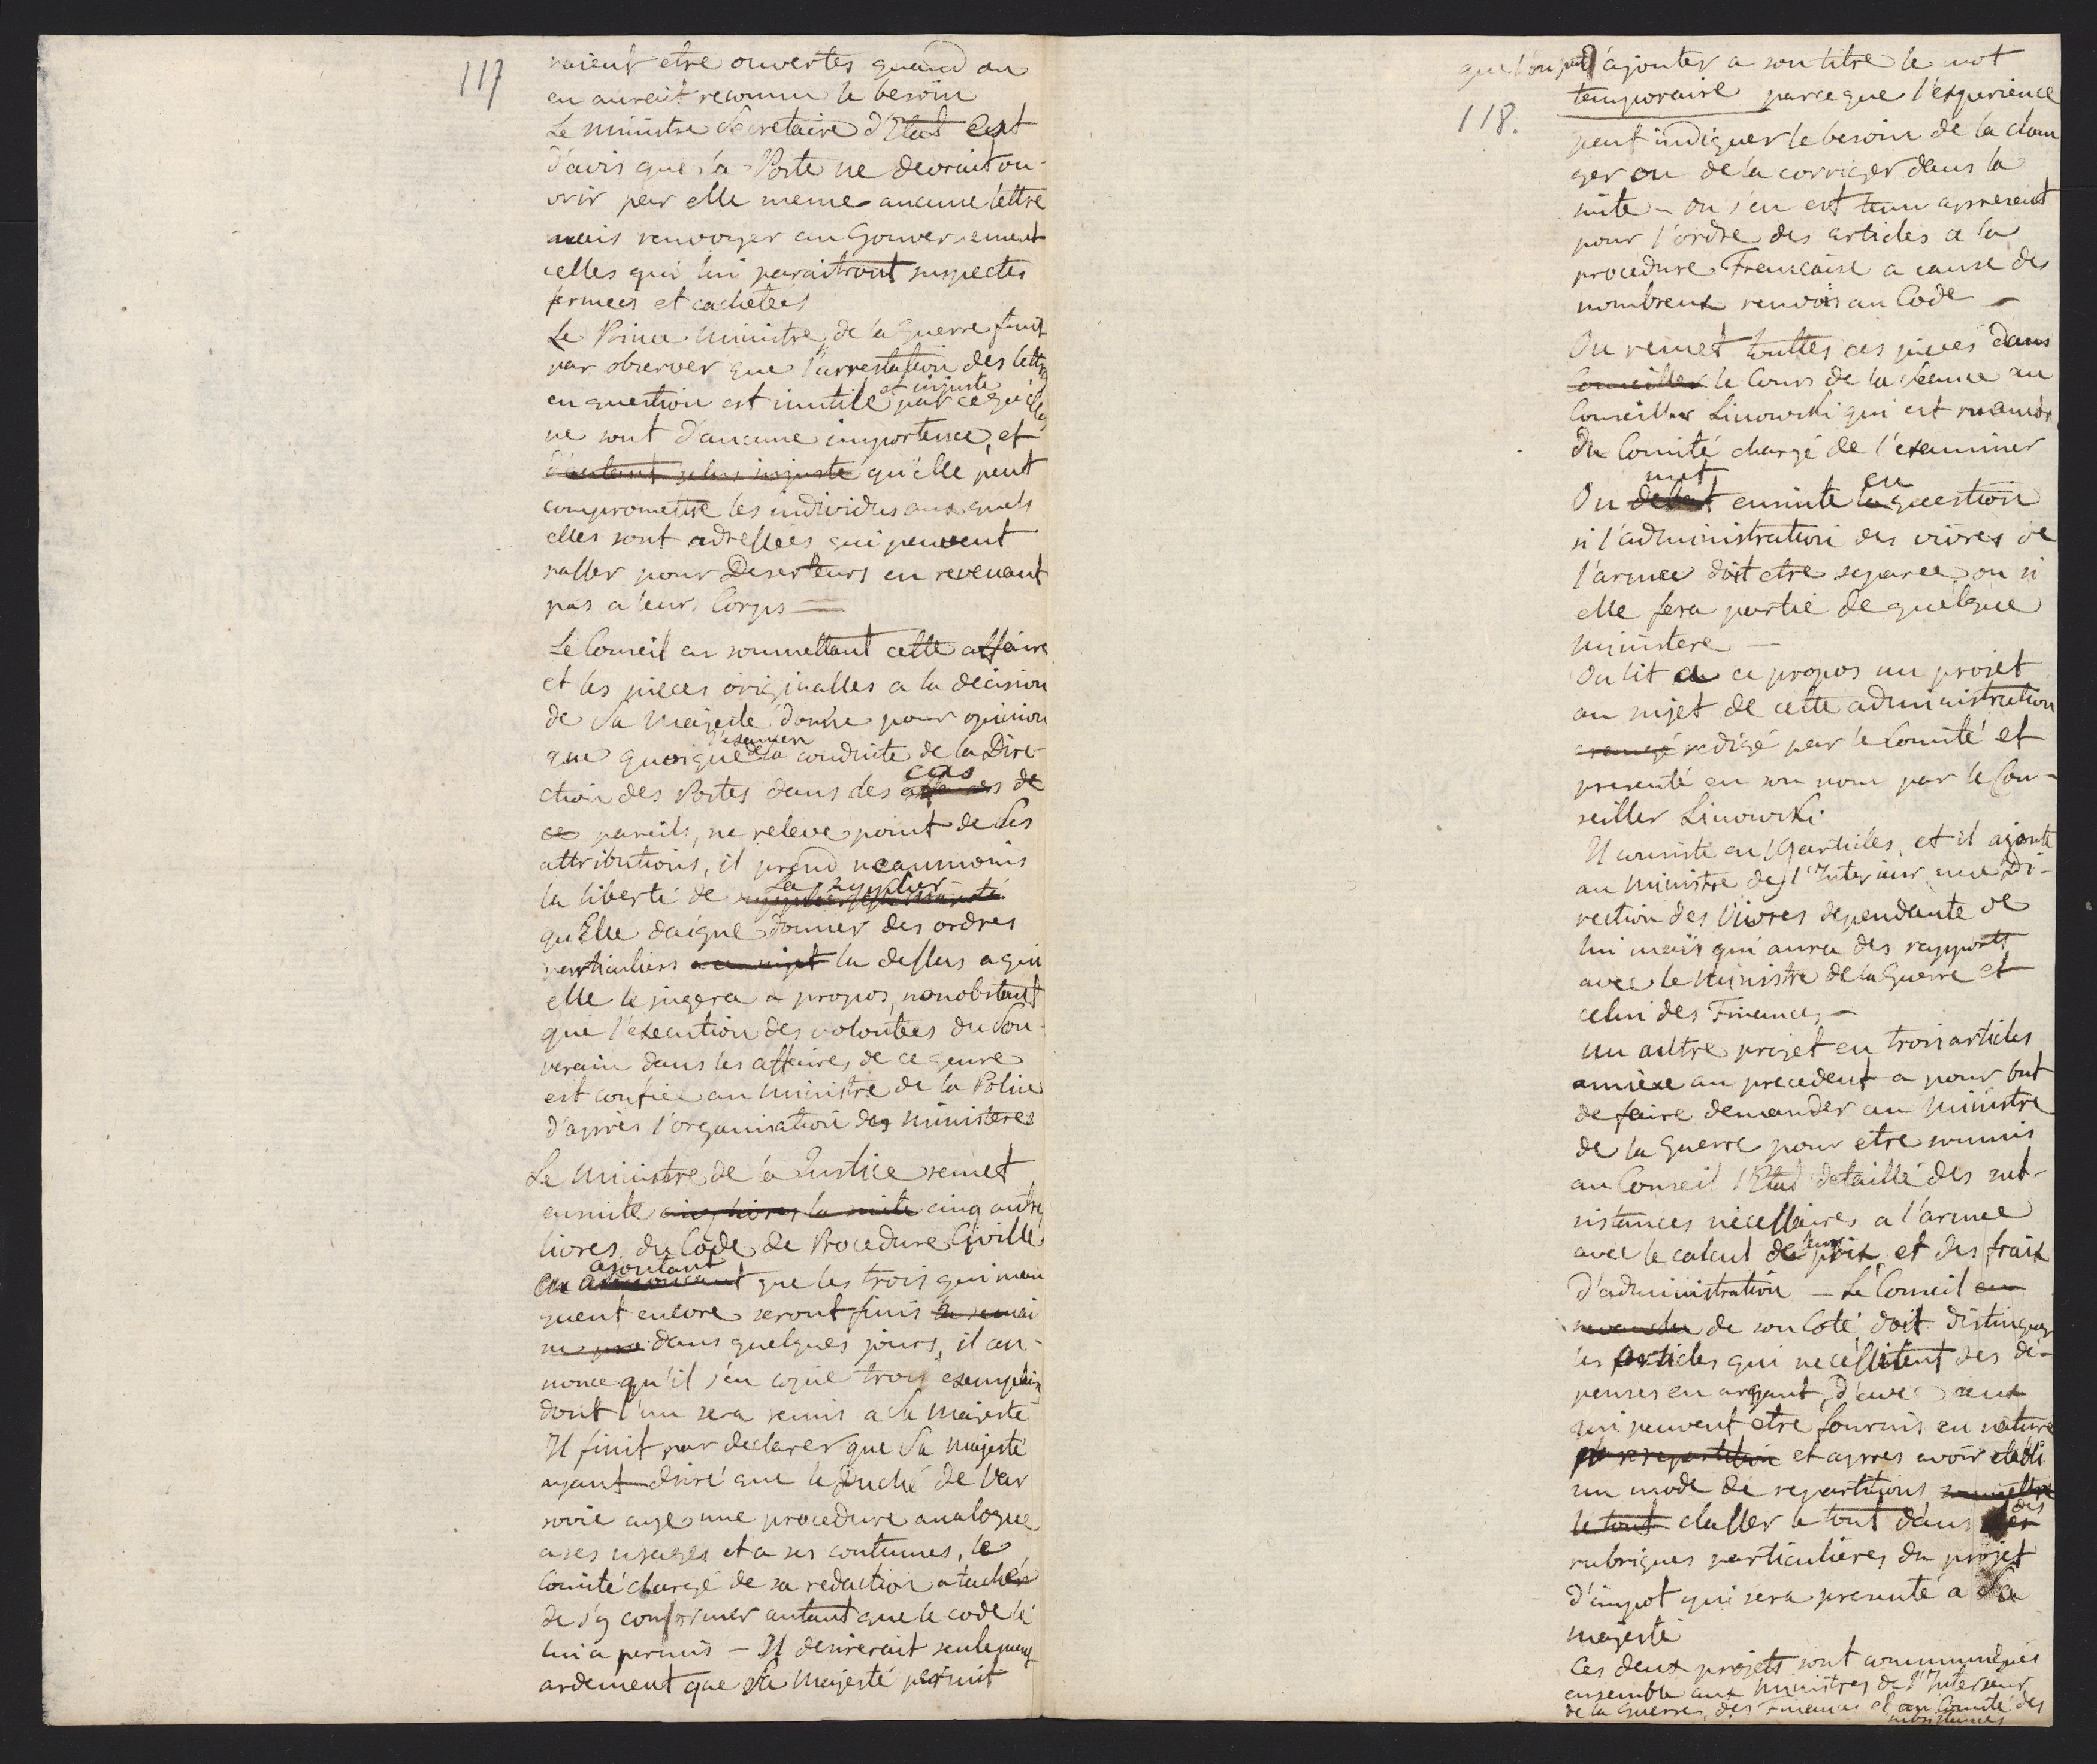 117
raient etre ouvertes quand on
en aurait reconnu le besoin
Le Ministre Secretaire d'Etat est
d'avis que la Poste ne devrait ou-
vrir par elle meme aucune lettre
mais renvoyer au Gouvernement
celles qui lui paraitront suspectes
fermees et cachetées
Le Prince Ministre de la Guerre finit
par observer que l'arrestation des lettres
en question est inutile et injuste par ce qu'elles
ne sont d'aucune importence, et
d'autant plus injuste qu'elle peut
comprometre les individus aux quels
elles sont adressées qui peuvent
passer pour Deserteurs en revenant
pas a leurs Corps —
Le Conseil en soumettant cette affaire
et les pieces originalles a la decision
de Sa Majesté donne pour opinion
que quoique l'examen de la conduite de la Dire-
ction des Postes dans des cas de
ce pareils, ne releve point de Ses
attributions, il prend neaunmoins
la liberté de La supplier
qu'Elle daigne donner des ordres
particuliers a ce sujet la dessus a qui
elle le jugera a propos, nonobstant
que l'execution des volontées du Sou-
verain dans les affaires de ce genre
est confiée au Ministre de la Police
d'après l'organisation des Ministeres
Le Ministre de la Justice remet
ensuite cinq livres la suite cinq autres
livres du Code de Procedure Civille
en ajoutant que les trois qui man
quent encore seront finis la semai
ne pro dans quelques jours, il an-
nonce qu'il s'en copie trois exemplaires
dont l'un sera remis a Sa Majesté
Il finit par declarer que Sa Majesté
ayant desiré que le Duché de Var
sovie aye une procedure analogue
a ses usages et a ses coutumes, le
Comité chargé de sa redaction a taché
de s'y conformer autant que le code le
lui a permis — Il desirerait seulement
ardement que Sa Majesté permit
que l'on put ajouter a son titre le mot
118. temporaire parceque l'experience
peut indiquer le besoin de la chan
ger ou de la corriger dans la
suite — On s'en est tenu apresent
pour l'ordre des articles a la
procedure Francaise a cause des
nombreux renvois au Code —
On remet touttes ces pieces dans
Conseiller le Cours de la Seance au
Conseiller Linowski qui est membre
du Comité chargé de l'examiner
On met ensuite en question
si l'administration des vivres de
l'armee doit etre separee ou si
elle fera partie de quelque
Ministere —
On lit a ce propos un projet
au sujet de cette administration
redigé par le Comité et
presenté en son nom par le Con-
seiller Linowski
Il consiste en 19 articles, et il ajoute
au Ministre de l'Interieur une Di-
rection des Vivres dependante de
lui mais qui aura des rapports
avec le Ministre de la Guerre et
celui des Finances —
un autre projet en trois articles
annexe au precedent a pour but
de faire demander au Ministre
de la Guerre pour etre soumis
au Conseil l'Etat detaillé des sub-
sistances nécessaires a l'armee
avec le calcul de leur prix et des fraix
d'administration — Le Conseil en
revanche de son Coté doit distinguer
les articles qui necessitent des dé-
penses en argent, d'avec ceux
qui peuvent etre fournis en nature
par repartition et apres avoir etabli
un mode de repartitions soumettre
le tout classer le tout dans des
rubriques particulieres du projet
d'impot qui sera presenté a Sa
Majesté
Ces deux projets sont communiqués
ensemble aux Ministres de l'Interieur
de la Guerre, des Finances et au Comité des
subsistances